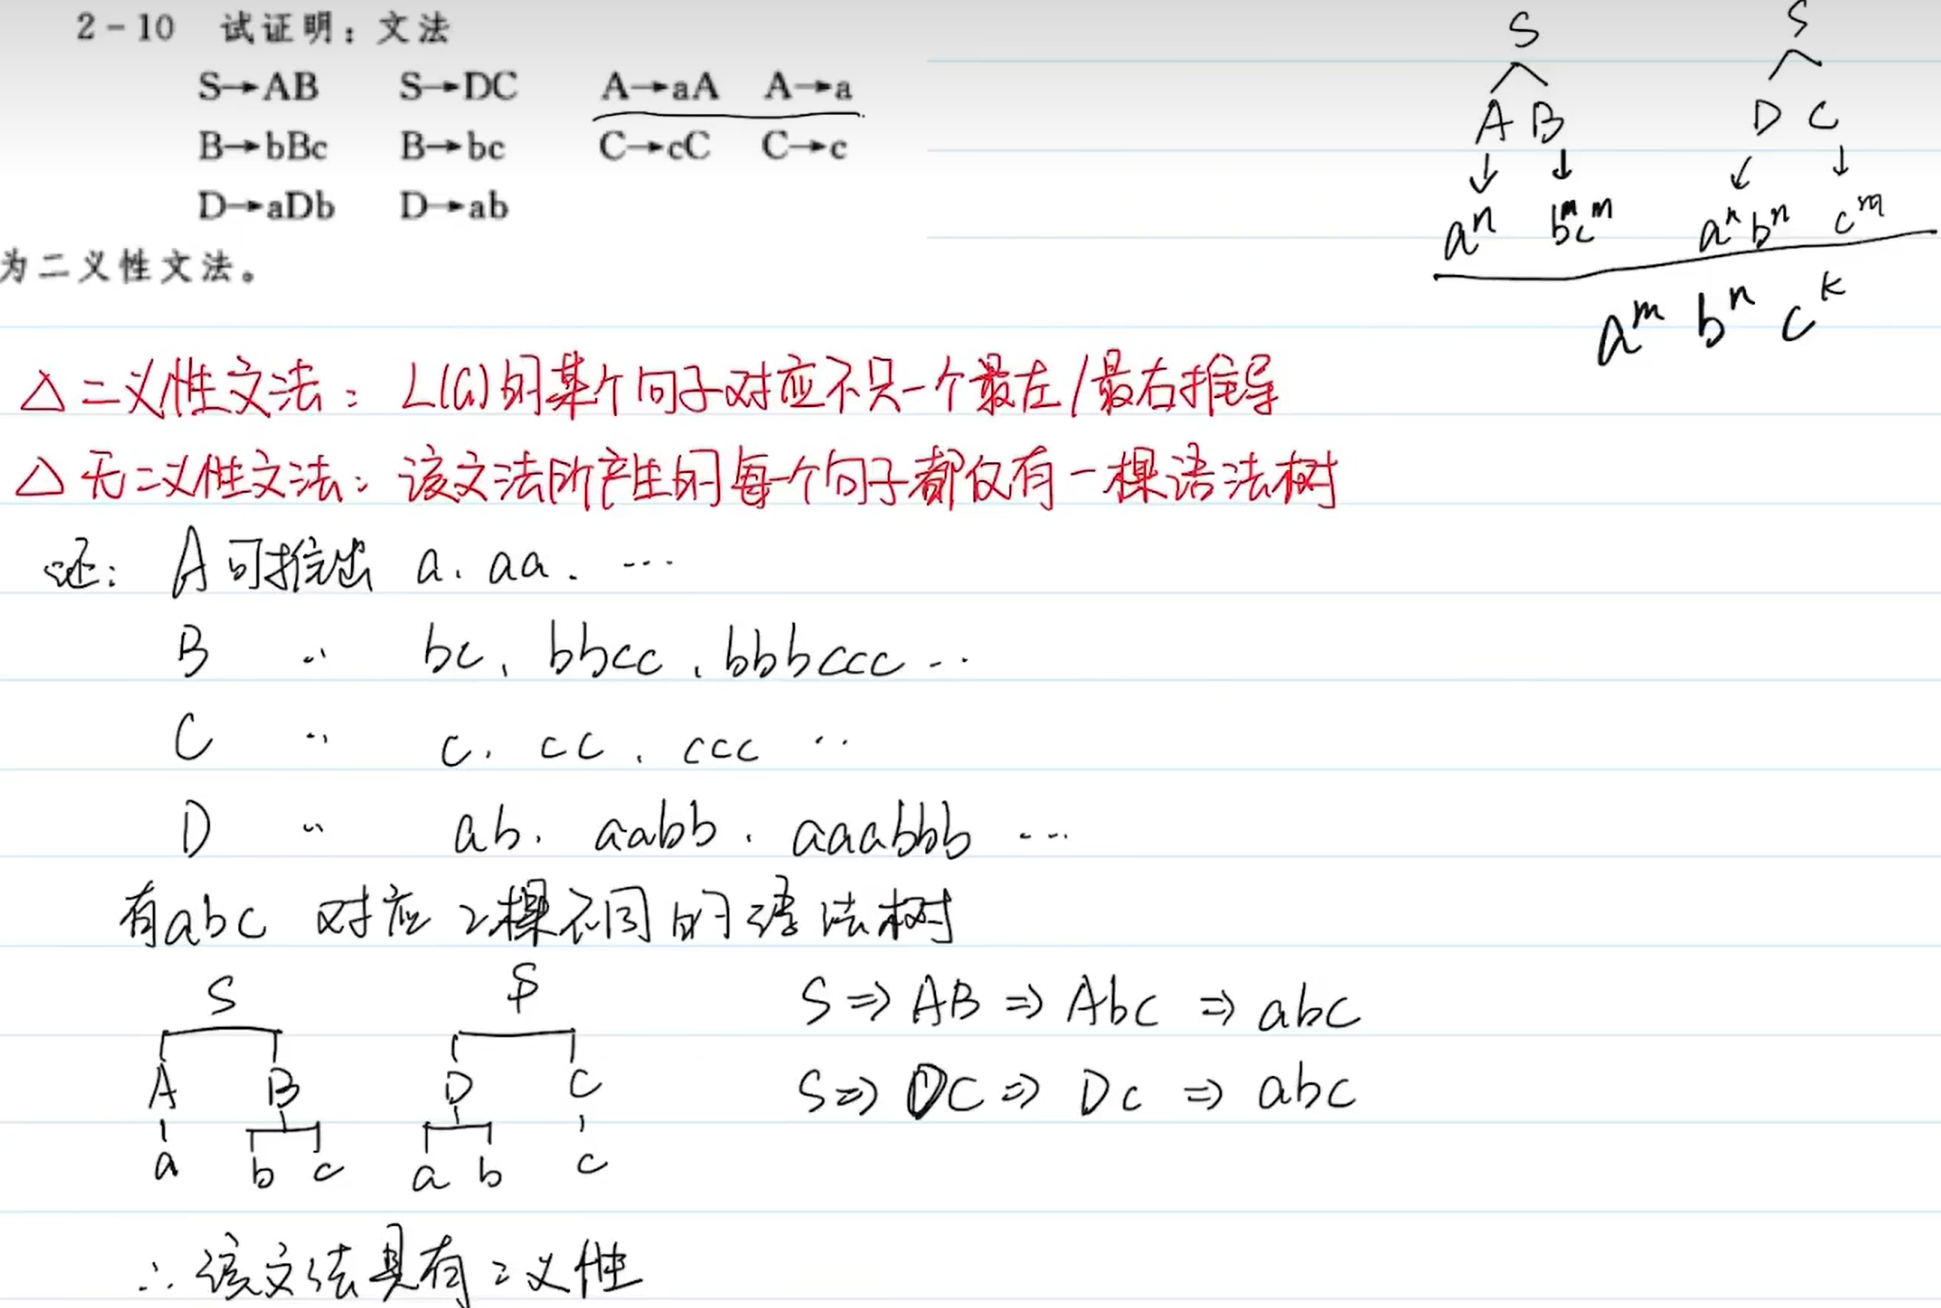 2-10 试证明：文法
S→AB S→DC A→aA A→a
B→bBc B→bc C→cC C→c
D→aDb D→ab
为二义性文法。
S
A B
↓ ↓
aⁿ bᵐcᵐ
S
D C
↓ ↓
aⁿbⁿ cᵐ
aᵐ bⁿ cᵏ
△ 二义性文法：L(G)的某个句子对应不只一个最左/最右推导
△ 无二义性文法：该文法所产生的每一个句子都仅有一棵语法树
证：A可推出 a、aa、…
B 〃 bc、bbcc、bbbccc …
C 〃 c、cc、ccc …
D 〃 ab、aabb、aaabbb …
有abc 对应2棵不同的语法树
S
A B
a b c
S
D C
a b c
S⇒AB⇒Abc⇒abc
S⇒DC⇒Dc⇒abc
∴该文法具有二义性